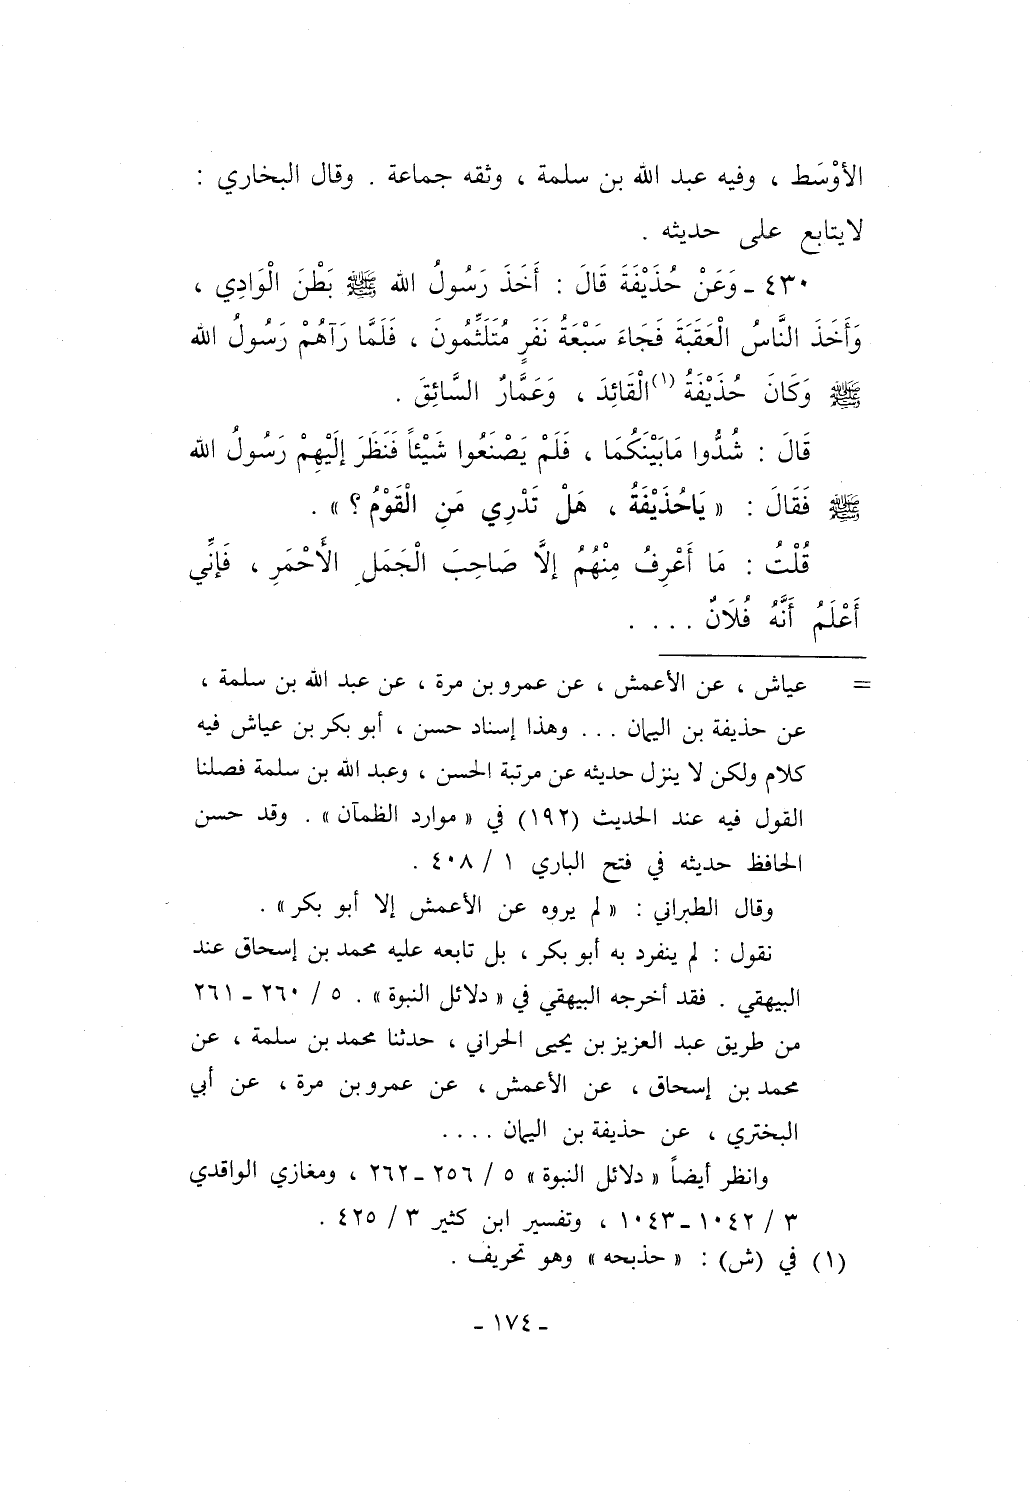 الأوْسَط ، وفيه عبد الله بن سلمة ، وثقه جماعة . وقال البخاري :
لايتابع على حديثه .
٤٣٠ ـ وَعَنْ حُذَيْفَةَ قَالَ : أَخَذَ رَسُولُ الله ﷺ بَطْنَ الْوَادِي ،
وَأَخَذَ النَّاسُ الْعَقَبَةَ فَجَاءَ سَبْعَةُ نَفَرٍ مُتَلَثِّمُونَ ، فَلَمَّا رَآهُمْ رَسُولُ الله
ﷺ وَكَانَ حُذَيْفَةُ (١)الْقَائِدَ ، وَعَمَّارٌ السَّائِقَ .
قَالَ : شُدُّوا مَابَيْنَكُمَا ، فَلَمْ يَصْنَعُوا شَيْئاً فَنَظَرَ إِلَيْهِمْ رَسُولُ الله
ﷺ فَقَالَ : « يَاحُذَيْفَةُ ، هَلْ تَدْرِي مَنِ الْقَوْمُ ؟ » .
قُلْتُ : مَا أَعْرِفُ مِنْهُمُ إلَّا صَاحِبَ الْجَمَلِ الأَحْمَرِ ، فَإنِّي
أَعْلَمُ أَنَّهُ فُلَانٌ . . . .
= عياش ، عن الأعمش ، عن عمرو بن مرة ، عن عبد الله بن سلمة ،
عن حذيفة بن اليمان . . . وهذا إسناد حسن ، أبو بكر بن عياش فيه
كلام ولكن لا ينزل حديثه عن مرتبة الحسن ، وعبد الله بن سلمة فصلنا
القول فيه عند الحديث (١٩٢) في « موارد الظمآن » . وقد حسن
الحافظ حديثه في فتح الباري ١ / ٤٠٨ .
وقال الطبراني : « لم يروه عن الأعمش إلا أبو بكر » .
نقول : لم ينفرد به أبو بكر ، بل تابعه عليه محمد بن إسحاق عند
البيهقي . فقد أخرجه البيهقي في « دلائل النبوة » . ٥ / ٢٦٠ ـ ٢٦١
من طريق عبد العزيز بن يحيى الحراني ، حدثنا محمد بن سلمة ، عن
محمد بن إسحاق ، عن الأعمش ، عن عمرو بن مرة ، عن أبي
البختري ، عن حذيفة بن اليمان . . . .
وانظر أيضاً « دلائل النبوة » ٥ / ٢٥٦ ـ ٢٦٢ ، ومغازي الواقدي
٣ / ١٠٤٢ ـ ١٠٤٣ ، وتفسير ابن كثير ٣ / ٤٢٥ .
(١) في (ش) : « حذبحه » وهو تحريف .
ـ ١٧٤ ـ